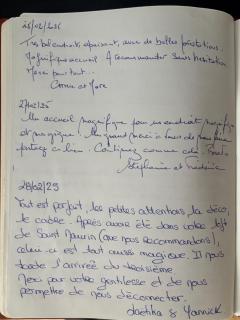 25/02/25
Très bel endroit, apaisant, avec de belles prestations.
Magnifique accueil. A recommander sans hésitation
Merci pour tout...
et Marc
27/02/25
Un accueil magnifique pour un endroit magnifique
et magique. Un grand merci à
Continuez comme cela.
Stéphanie et
28/02/25
Tout est parfait, les petites attentions, la déco,
le cadre. Après avoir été dans votre loft
de Saint Maurin (que nous recommandons),
celui-ci est tout aussi magique. Il nous
tarde l'arrivée du troisième.
Merci pour votre gentillesse et de nous
permettre de nous déconnecter.
Laetitia & Yannick